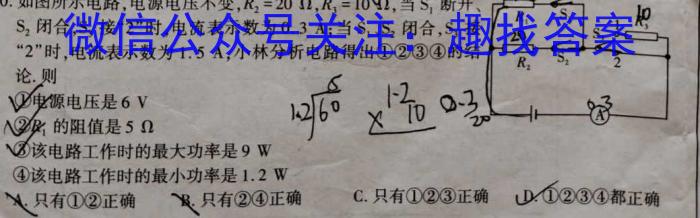 如图所示电路,电源电压不变,R₂=20 Ω,R₃=10 Ω,当S₁断开、
S₂闭合 接“2”时,电流表示数为0.3 A;当 闭合,S
“2”时,电流表示数为1.5 A,小林分析电路得出①②③④的结
论.则
微信公众号关注:趣找答案
①电源电压是6 V
②R₁的阻值是5 Ω
③该电路工作时的最大功率是9 W
④该电路工作时的最小功率是1.2 W
A.只有①②正确 B.只有②④正确 C.只有①②③正确 D.①②③④都正确
5
1.2 60
1.2
× 10
0.3
20
10
S₂
R₂ S₂ 2
0.3
A